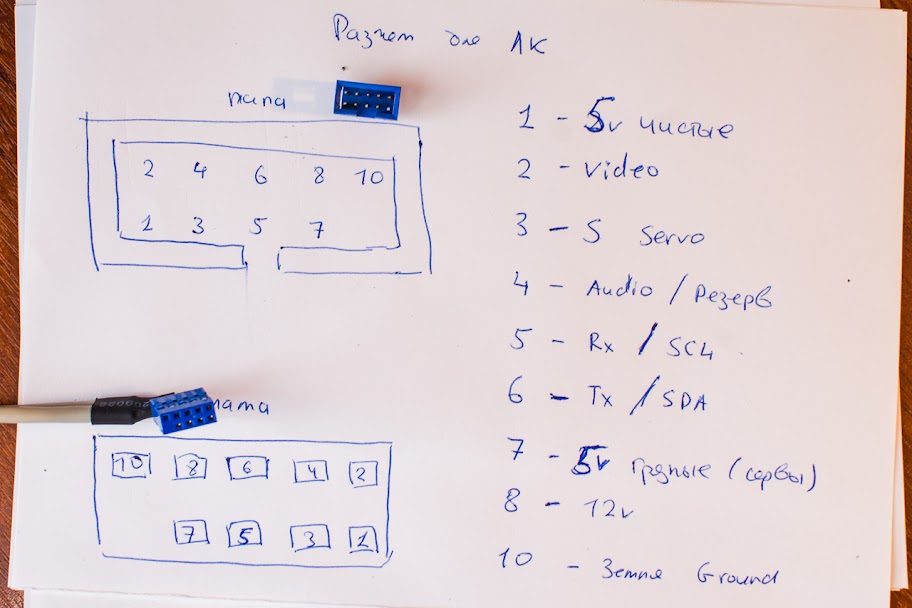 Разъем для ЛК
папа
2 4 6 8 10
1 3 5 7
мама
10 8 6 4 2
7 5 3 1
1 - 5v чистые
2 - Video
3 - S Servo
4 - Audio / Резерв
5 - Rx / SCL
6 - Tx / SDA
7 - 5v грязные (сервы)
8 - 12v
10 - Земля Ground